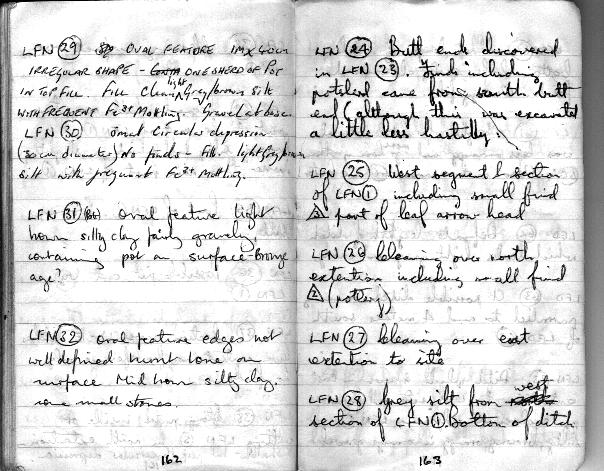 LFN 29 OVAL FEATURE 1M X 60cm
IRREGULAR SHAPE - ONE SHERD OF POT
IN TOP FILL. FILL Clean light Grey/brown silt
WITH FREQUENT Fe3+ Mottling. Gravel at base
LFN 30 small circular depression
(30cm diameter) No finds - Fill. light Grey/brown
silt with frequent Fe3+ Mottling.
LFN 31 oval feature light
brown silty clay fairly gravely
containing pot on surface - Bronze
age?
LFN 32 oval feature edges not
well defined burnt bone on
surface Mid brown silty clay.
some small stones.
162
LFN 24 Butt ends discovered
in LFN 23. Finds including
potsherd came from south butt
end (although this was excavated
a little less hastilly.)
LFN 25 West segment & section
of LFN 1 including small find
3 part of leaf arrow head
LFN 26 cleaning over north
extention including small find
2 (pottery)
LFN 27 cleaning over east
extention to site
LFN 28 Grey silt from west
section of LFN 1. Bottom of ditch
163